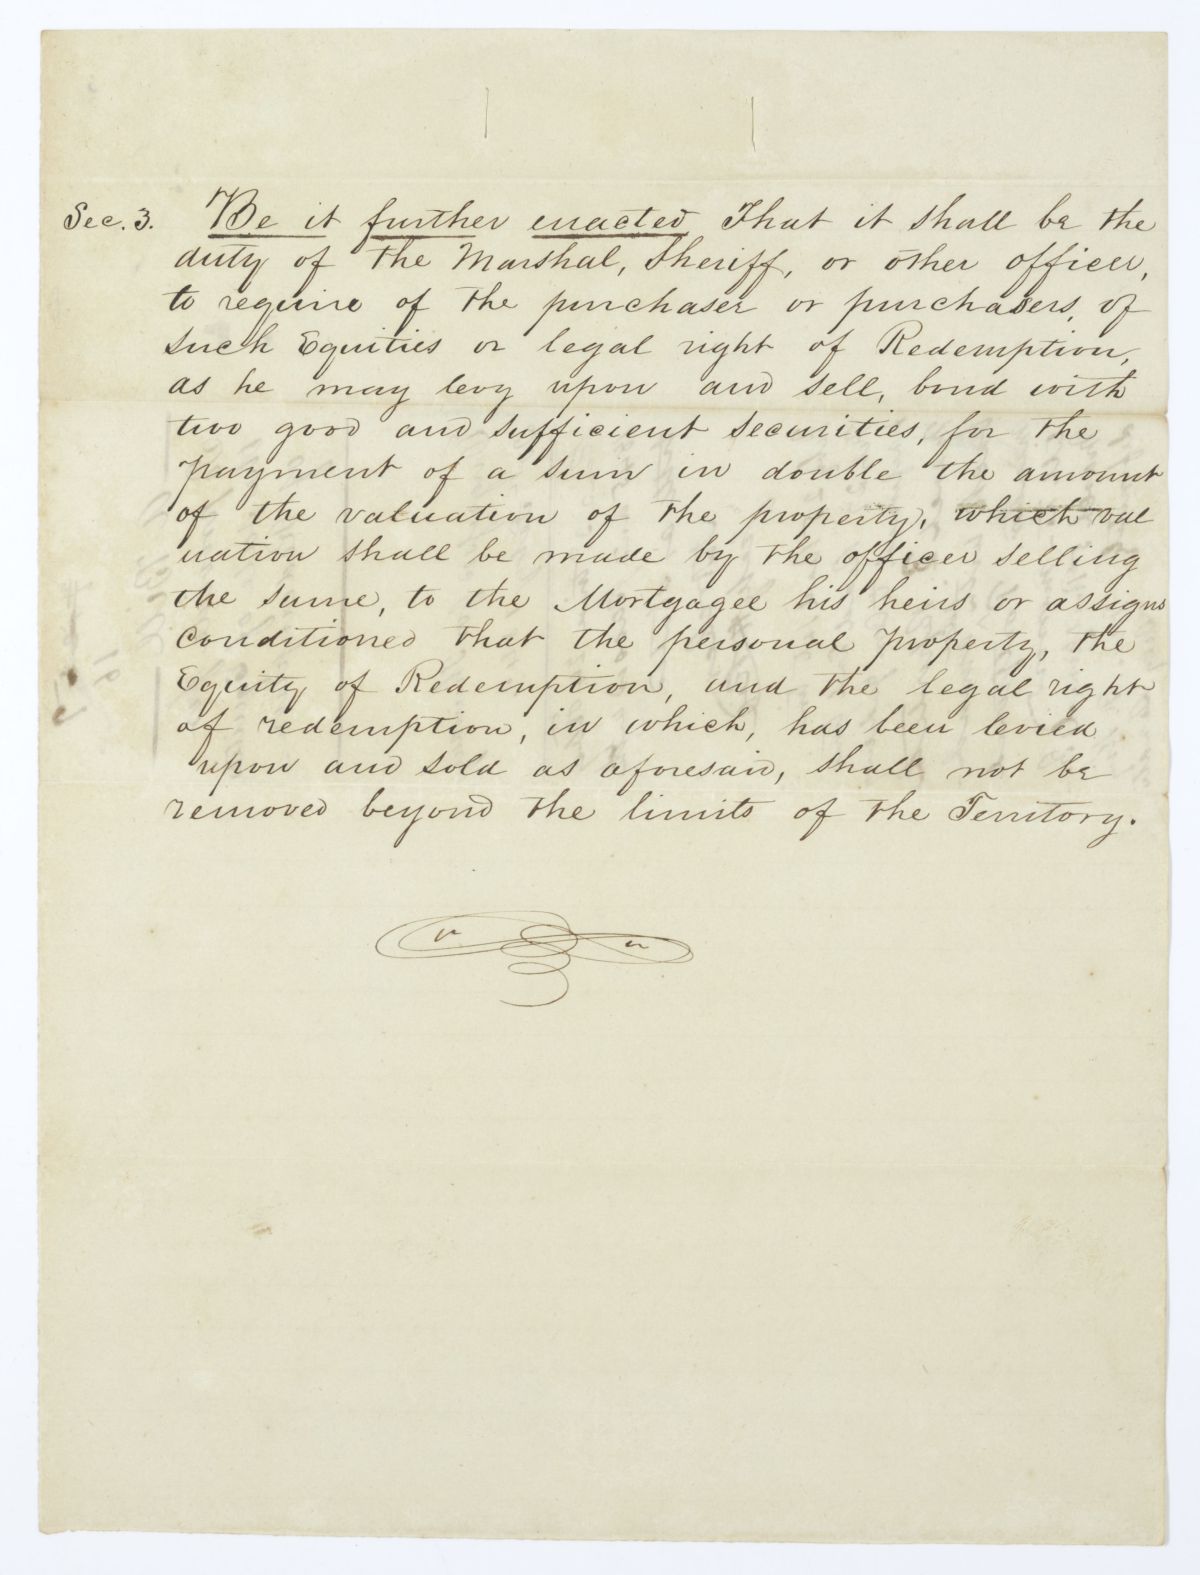 Sec. 3. Be it further enacted That it shall be the
duty of the Marshal, Sheriff, or other officer,
to require of the purchaser or purchasers, of
such Equities or legal right of Redemption,
as he may levy upon and sell, bond with
two good and sufficient securities, for the
payment of a sum in double the amount
of the valuation of the property, which val
uation shall be made by the officer selling
the same, to the Mortgagee his heirs or assigns
conditioned that the personal property, the
Equity of Redemption, and the legal right
of redemption, in which, has been levied
upon and sold as aforesaid, shall not be
removed beyond the limits of the Territory.